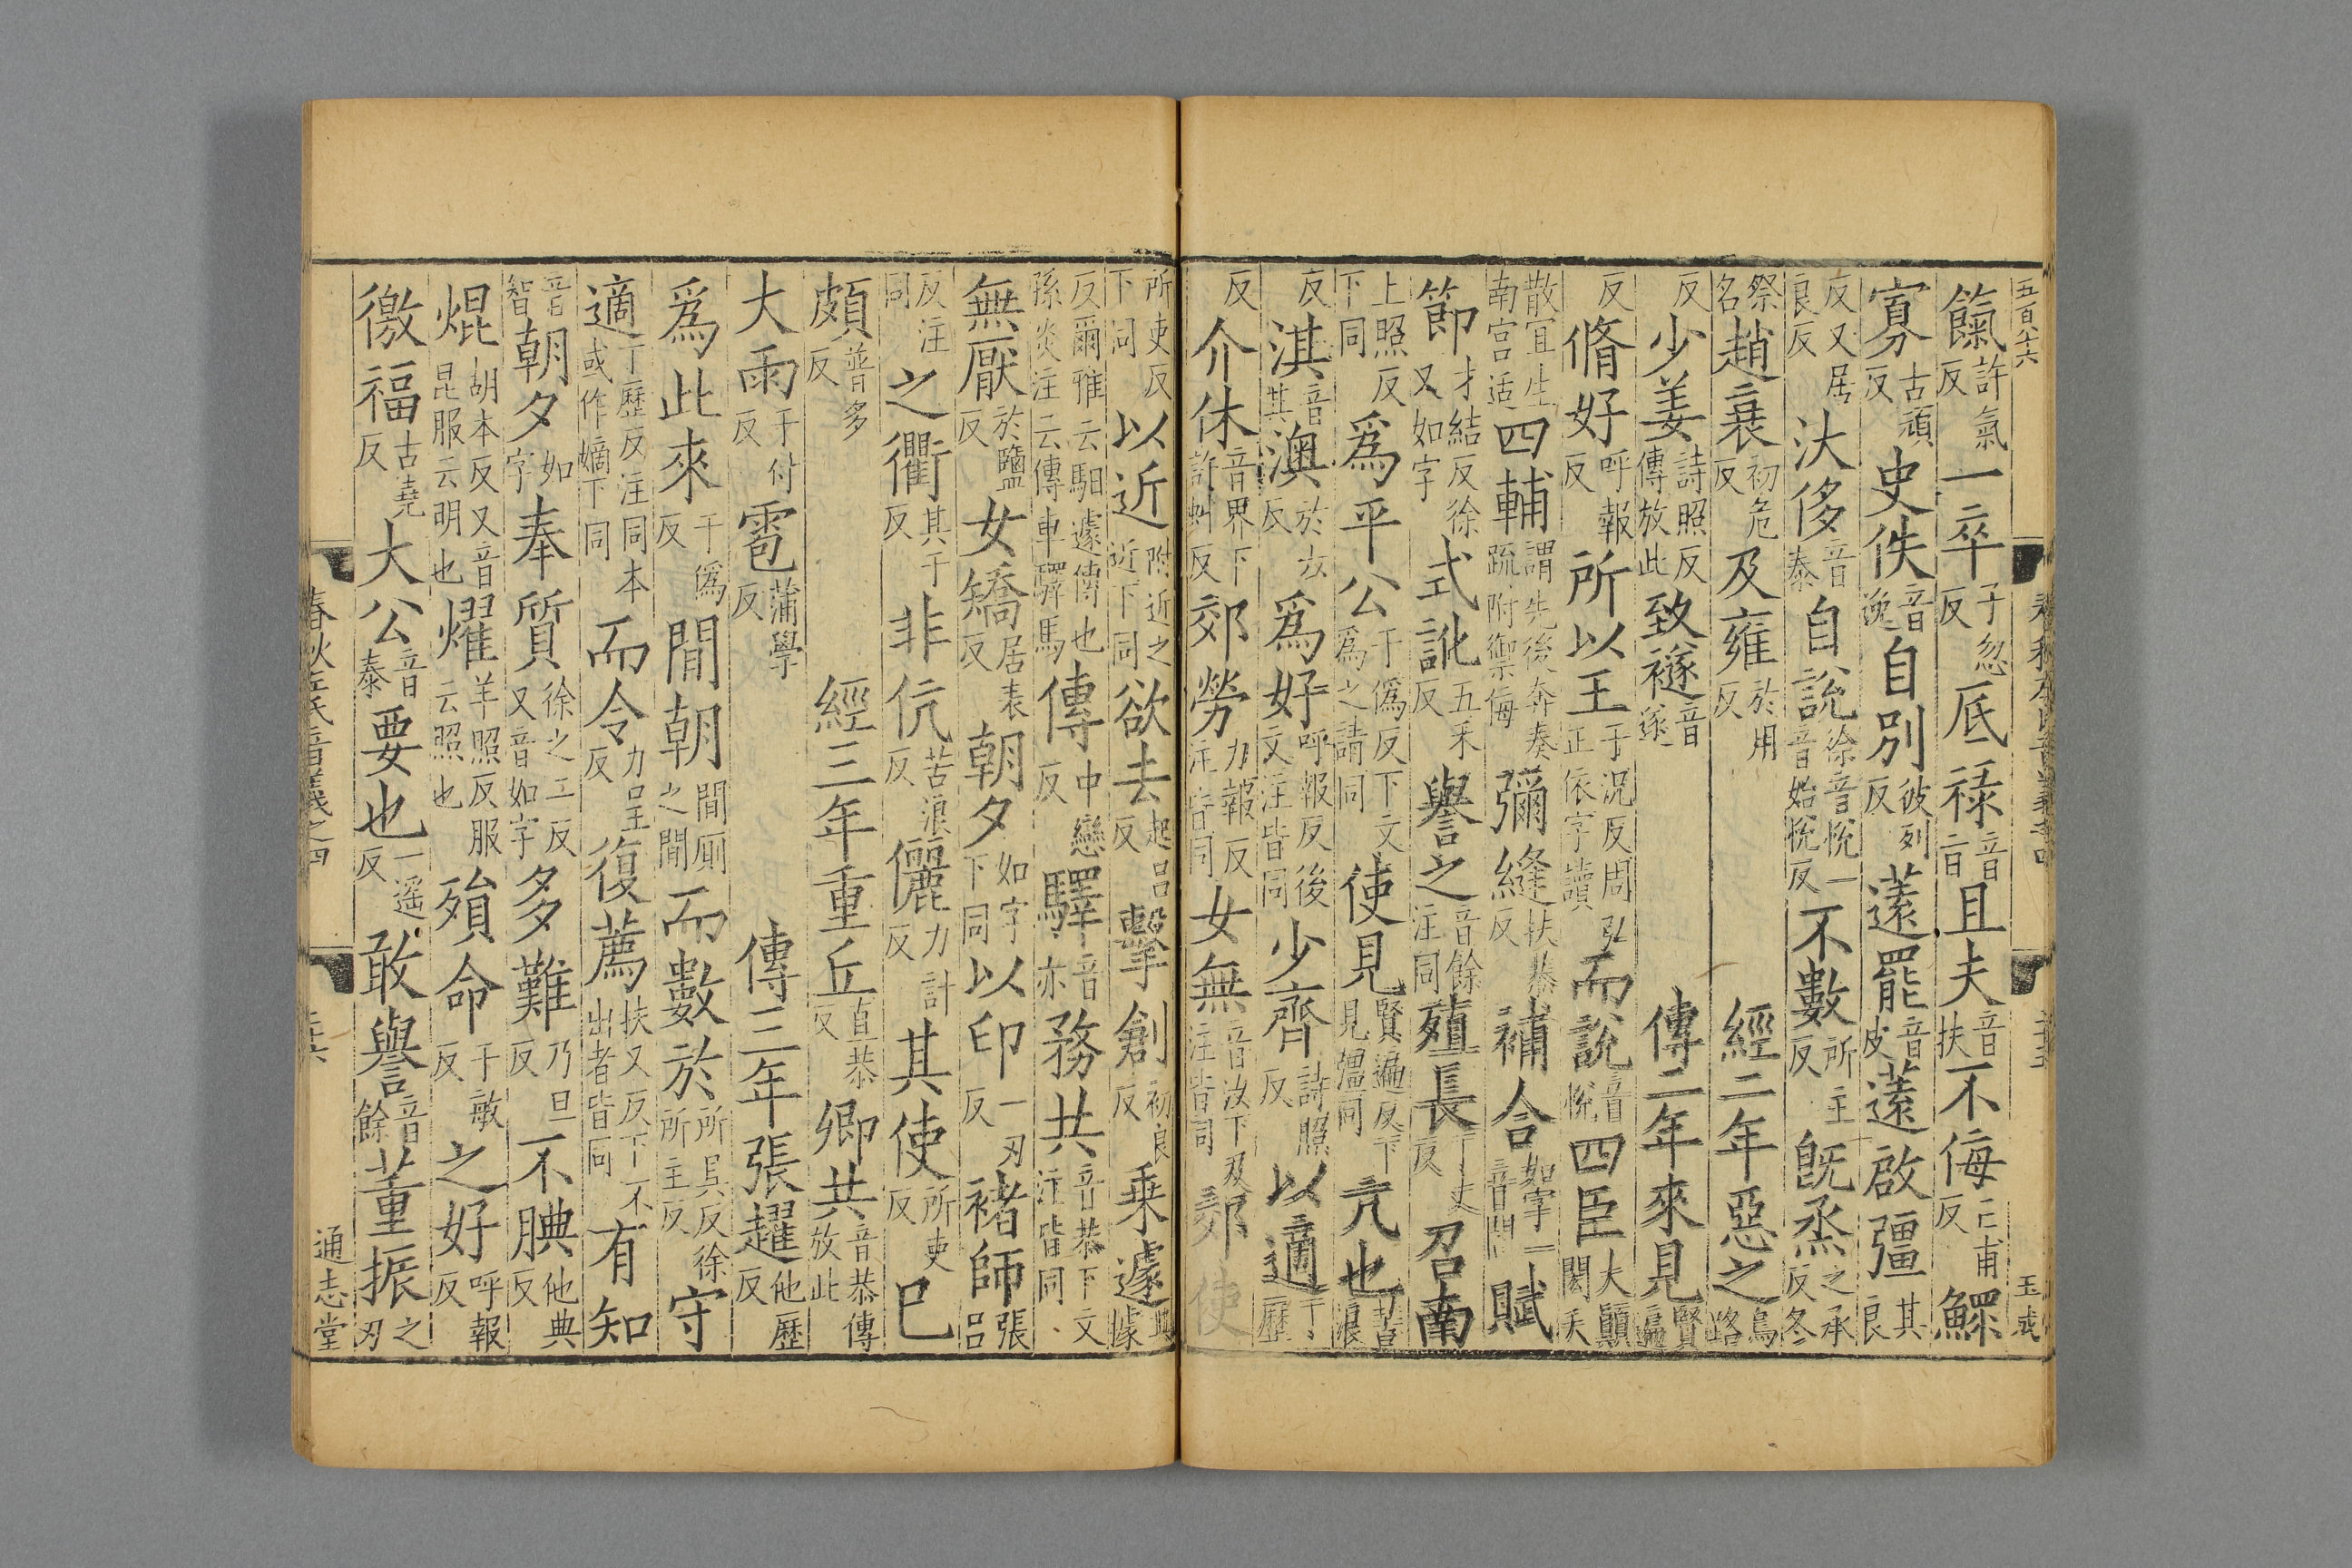 五百八十六 玉成
餼許氣反一卒子忽反底祿音旨且夫音扶不侮亡甫反鰥
寡古頑反史佚音逸自別彼列反薳罷音皮薳啟彊其良
反又居良反汏侈音泰自說徐音悅一音始悅反不數所主反既烝之承反冬
祭名趙衰初危反及雍於用反經二年惡之烏路
反少姜詩照反傳放此致襚音遂傳二年來見賢遍
反脩好呼報反所以王于況反周弘正依字讀而說音悅四臣大顛閎夭
散宜生南宮适四輔謂先後奔奏疏附禦侮彌縫扶恭反補合如字一音閤賦
節才結反徐又如字式訛五禾反譽之音餘注同殖長丁丈反召南
上照反下同爲平公于僞反下文爲之請同使見賢遍反下見彊同亢也苦浪
反淇音其澳於六反爲好呼報反後文注皆同少齊詩照反以適丁歷
反介休音界下許虬反郊勞力報反注皆同女無音汝下及注皆同郊使
所吏反下同以近附近之近下同欲去起呂反擊創初良反乗遽其據
反爾雅云馹遽傳也孫炎注云傳車驛馬傳中戀反驛音亦務共音恭下文注皆同
無厭於鹽反女矯居表反朝夕如字下同以印一刃反褚師張呂
反注同之衢其于反非伉苦浪反儷力計反其使所吏反巳
頗普多反經三年重丘直恭反卿共音恭傳放此
大雨于付反雹蒲學反傳三年張趯他歷反
爲此來于僞反間朝間厠之間而數於所具反徐所主反守
適丁歷反注同本或作嫡下同而令力呈反復薦扶又反下不出者皆同有知
音智朝夕如字奉質徐之二反又音如字多難乃旦反不腆他典反
焜胡本反又音昆服云明也燿羊照反服云照也殞命于敏反之好呼報反
徼福古堯反大公音泰要也一遥反敢譽音餘董振之刃
春秋左氏音義之四 三十六 通志堂